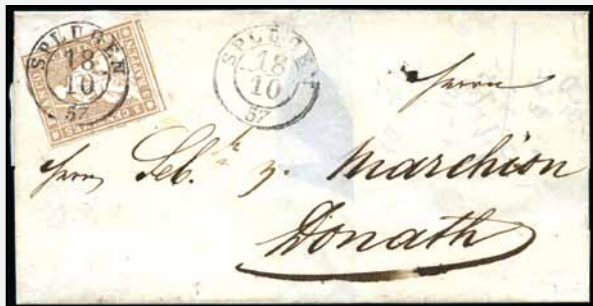 SPLUGEN
18
10
57
SPLUGEN
18
10
57
FRANCO
Herrn
Herrn Seb. Marchion
Donath